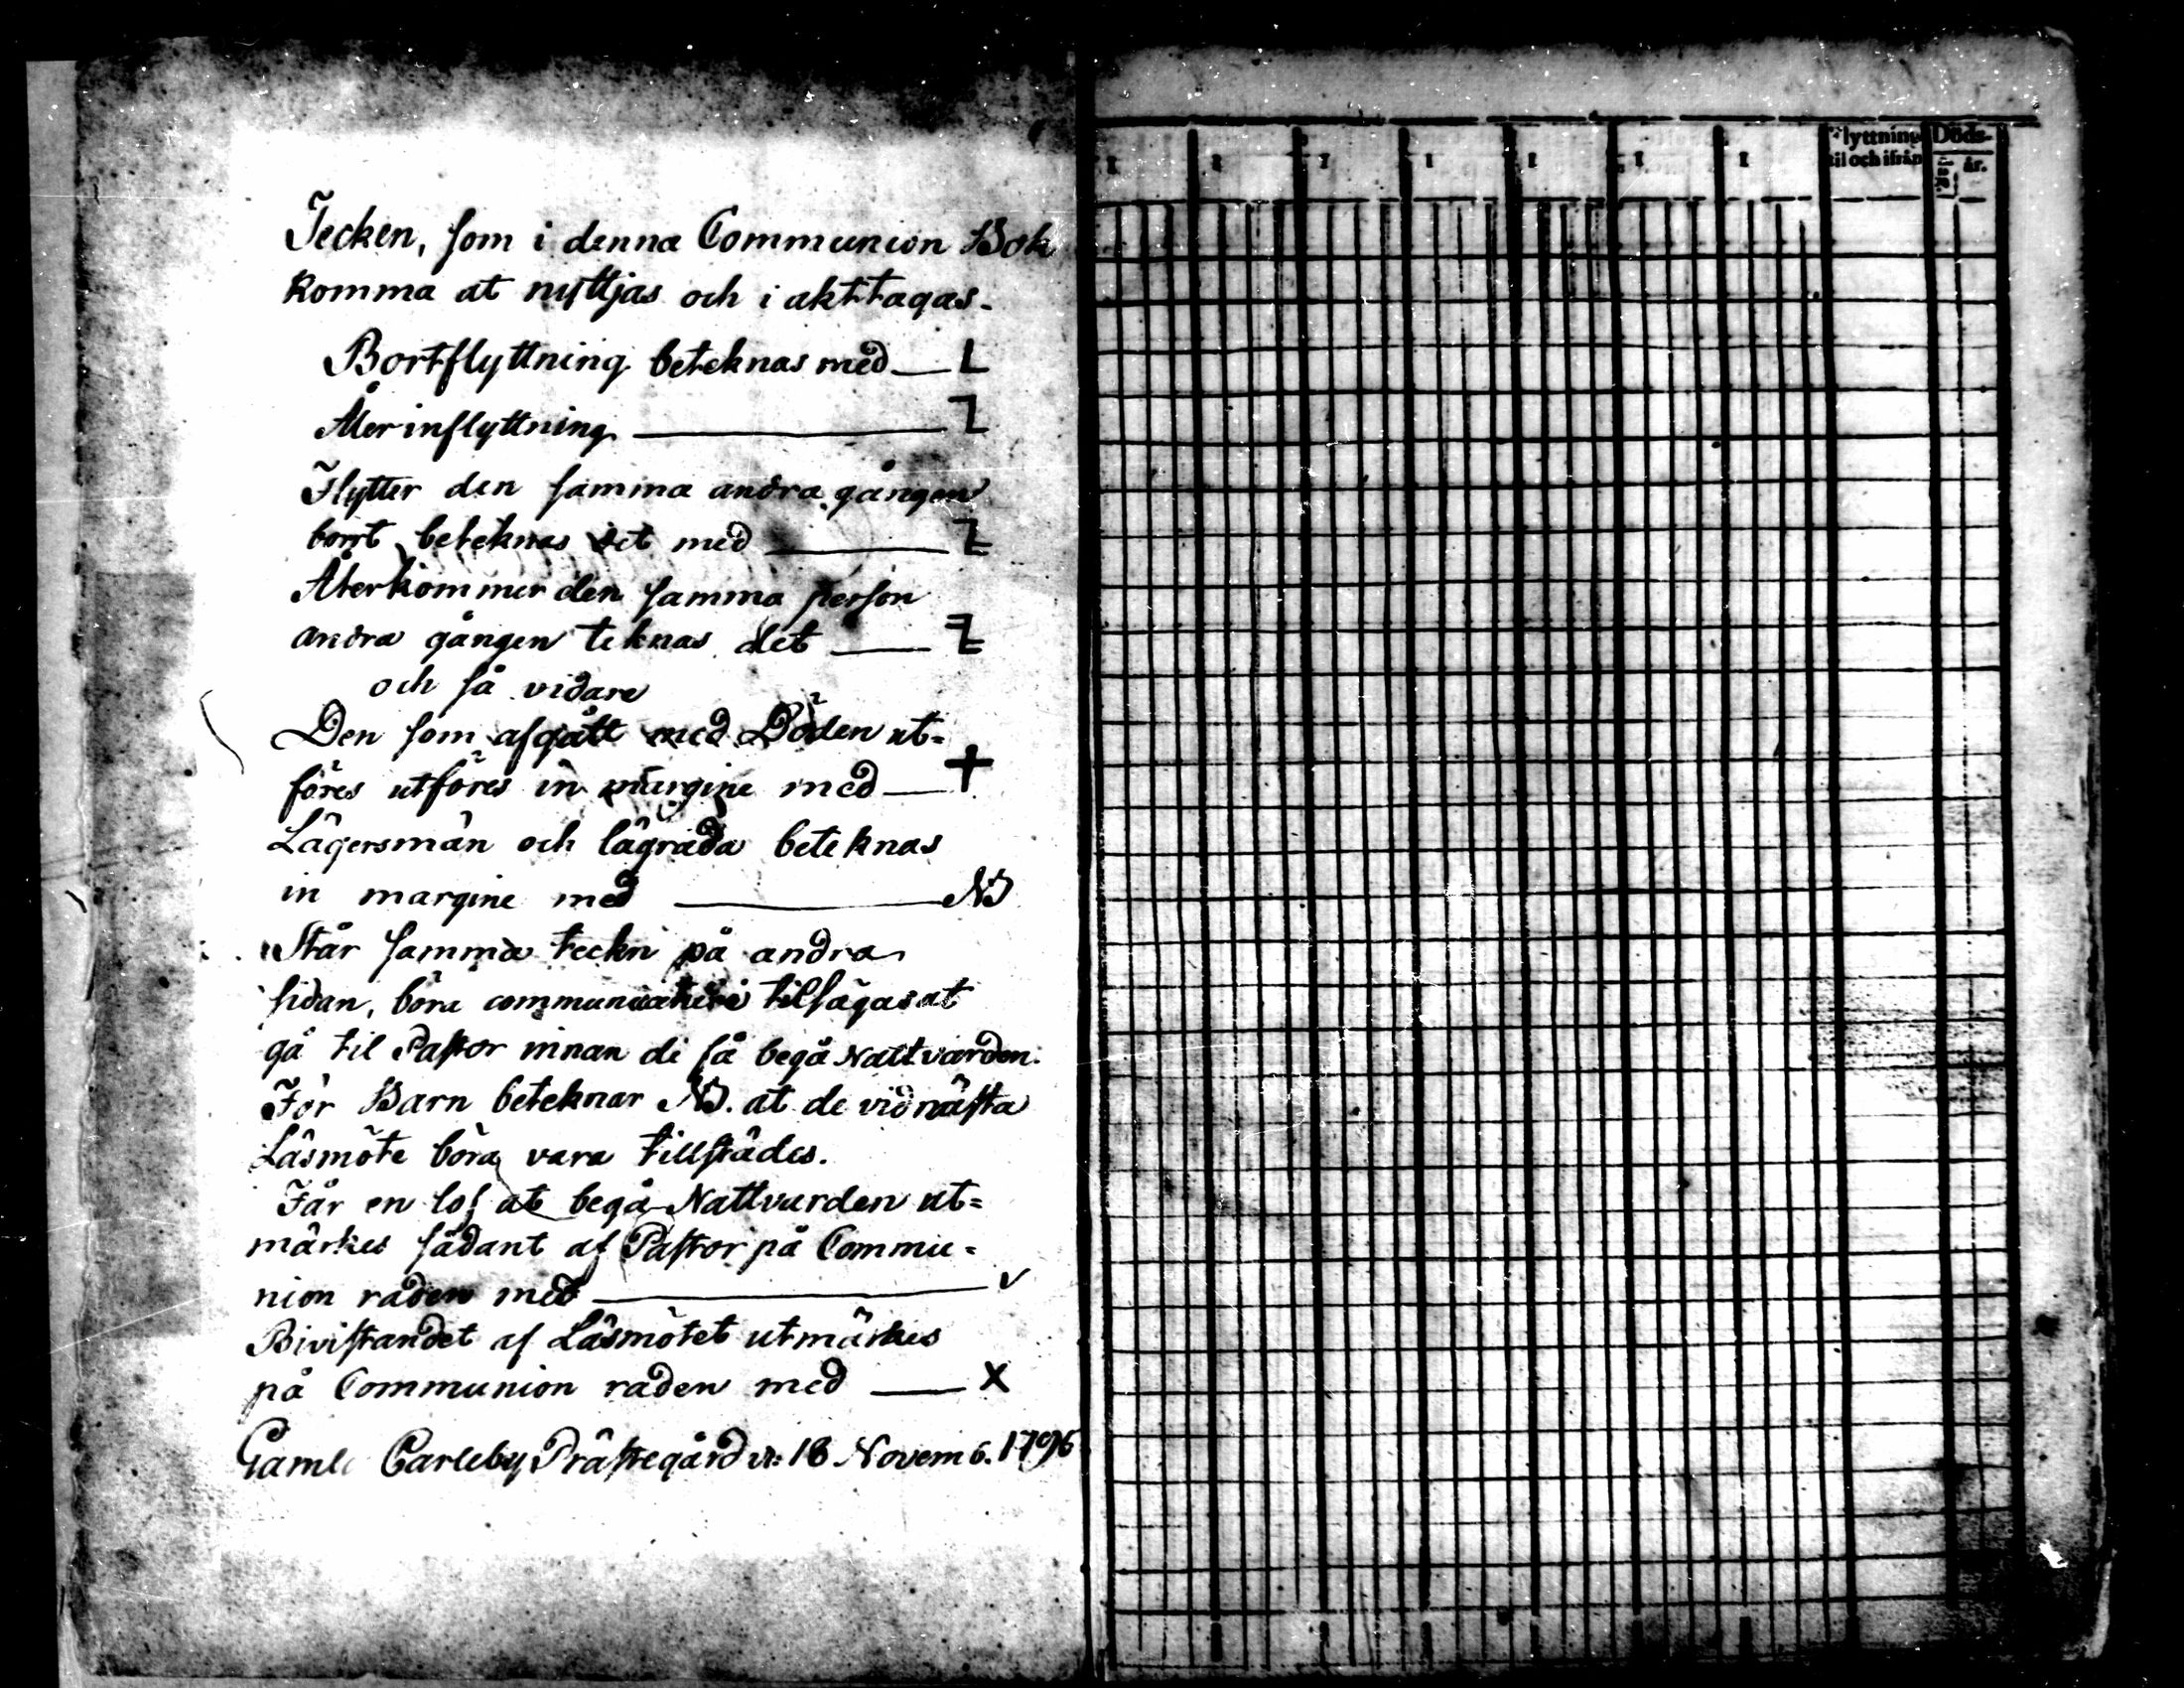 Tecken, som i denna Communion Bok
komma at nyttjas och i akttagas.
Bortflyttning beteknas med — L
Återinflyttning — Z
Flytter den samma andra gången
bort beteknas det med — Z
Återkommer den samma person
andra gången teknas det — Z
och så vidare
Den som afgått med Döden ut=
föres utföres in margine med — +
Lägersmän och lägrada beteknas
in margine med — NB
Står samma teckn på andra
sidan, böra tilsägas at
gå til Pastor innan de få begå Nattvarden.
För Barn beteknar NB. at de vid nästa
Läsmöte böra vara tillstädes.
Får en lof at begå Nattvarden ut=
märkes sådant af Pastor på Commu=
nion raden med — v
Bivistandet af Läsmötet utmärkes
på Communion raden med — X
Gamle Carleby Prästegård 18 Novemb. 1796
1 1 1 1 1 1 1
Flyttning
til och ifrån
Döds-
år.